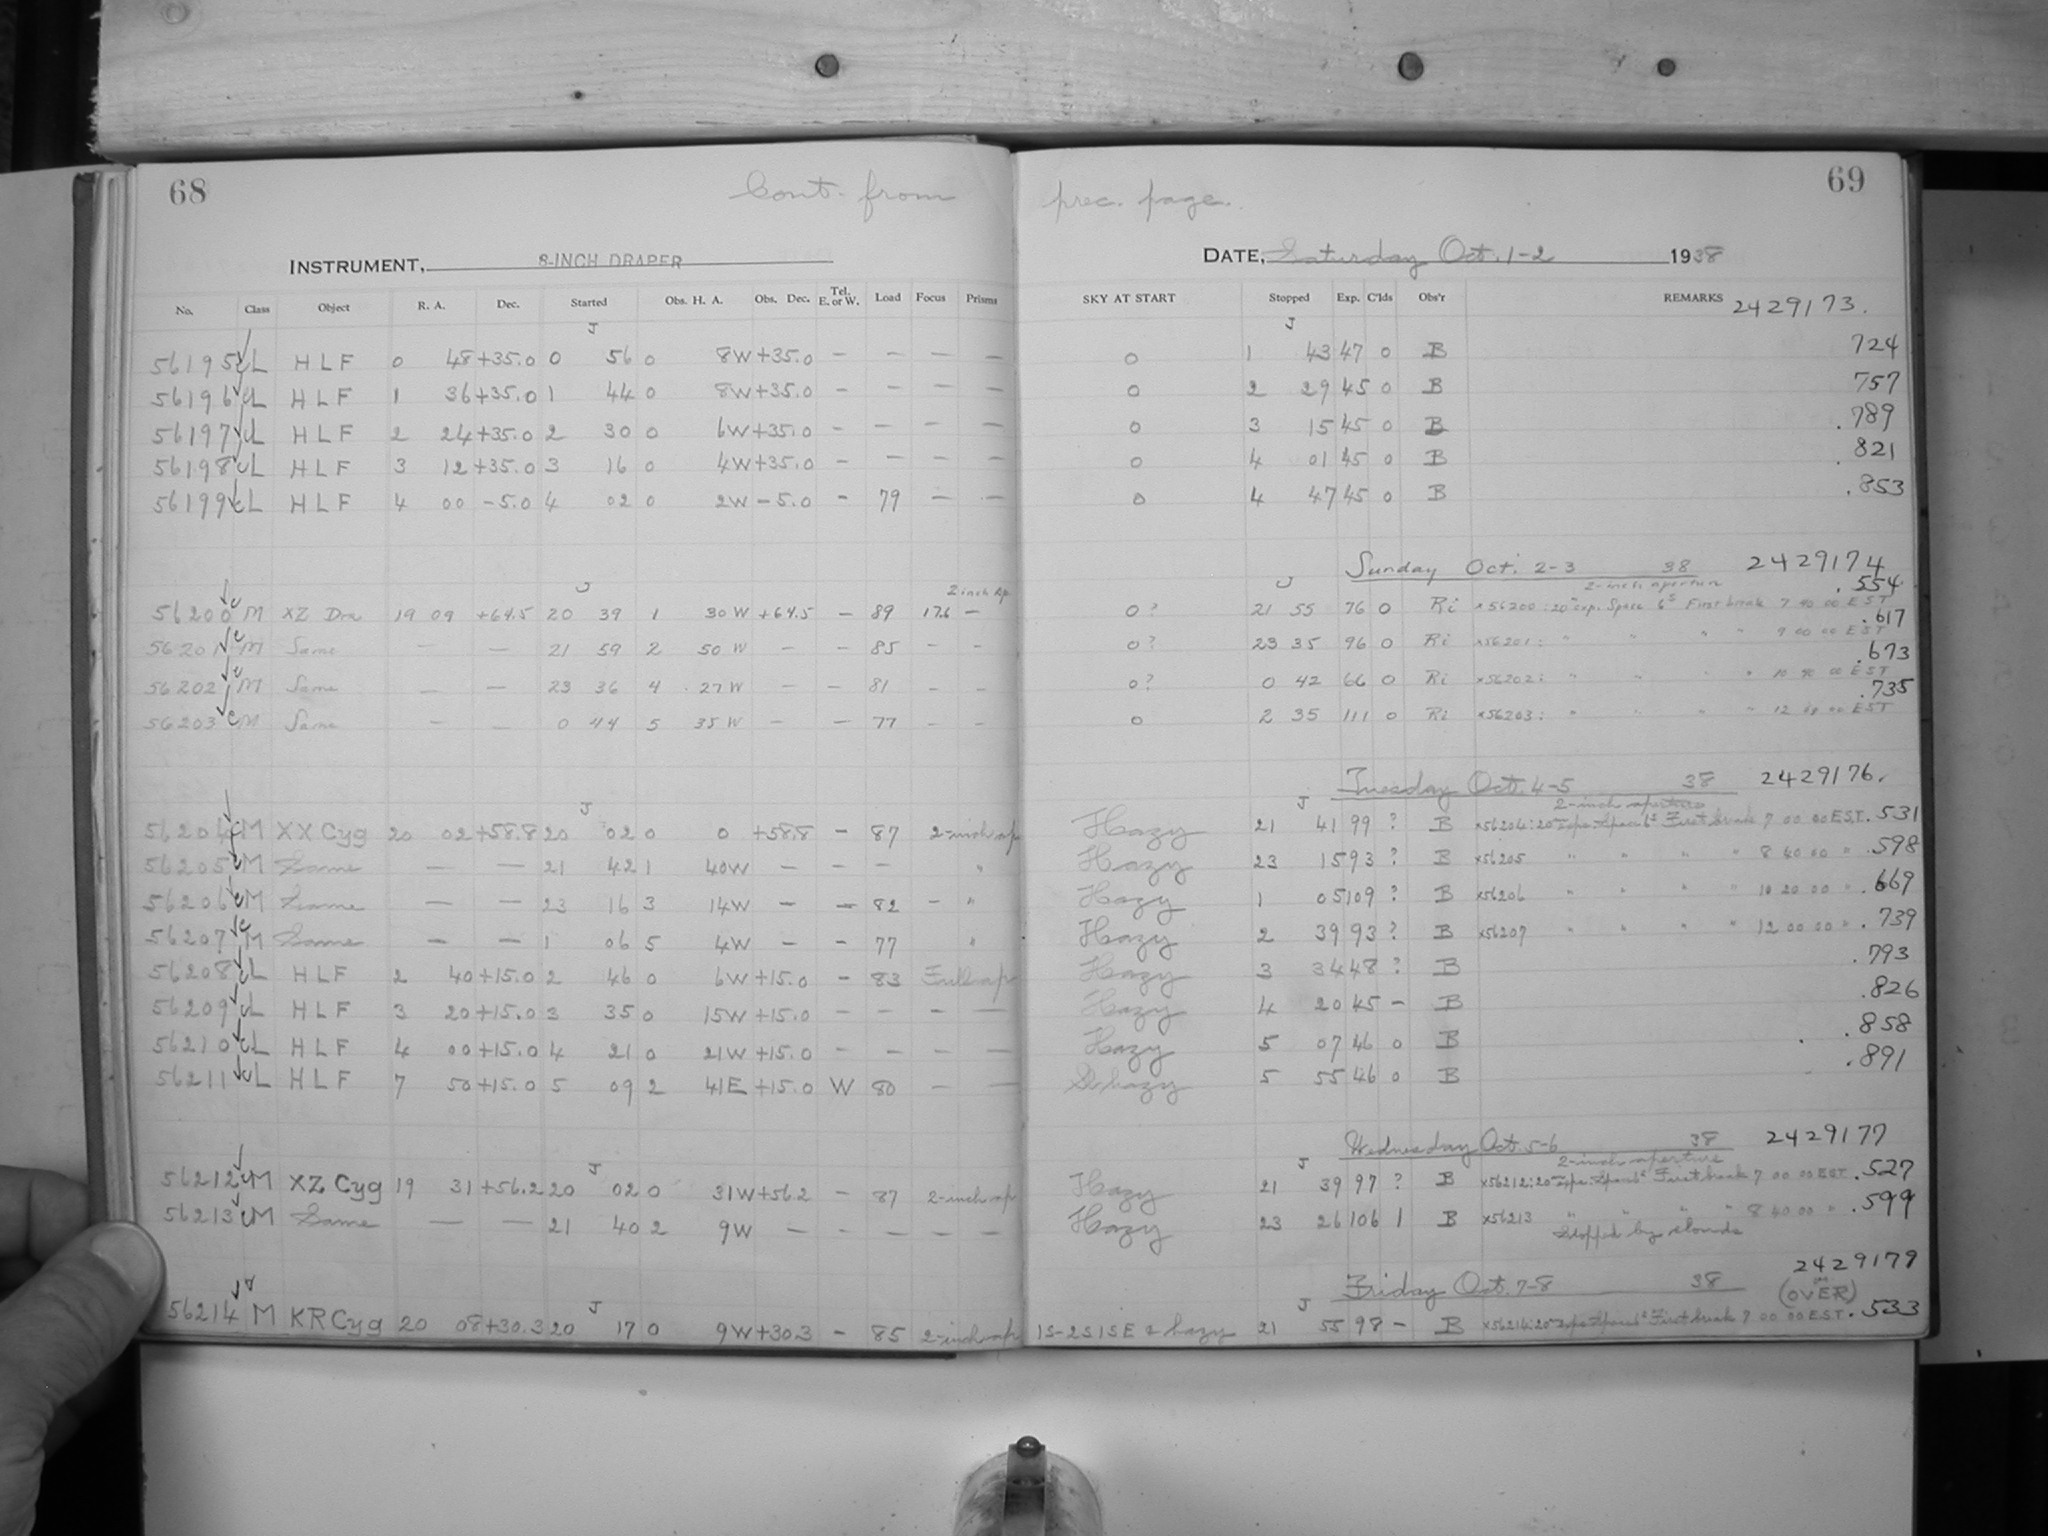 68 Cont. from prec. page. 69
INSTRUMENT, 8-INCH DRAPER DATE, Saturday Oct. 1-2 1938
No. Class Object R. A. Dec. Started Obs. H. A. Obs. Dec. Tel. E. or W. Load Focus Prisms SKY AT START Stopped Exp. C'lds Obs'r REMARKS 2429173.
J J
56195 cL HLF 0 48 +35.0 0 56 0 8W +35.0 - - - - 0 1 43 47 0 B 724
56196 cL HLF 1 36 +35.0 1 44 0 8W +35.0 - - - - 0 2 29 45 0 B 757
56197 cL HLF 2 24 +35.0 2 30 0 6W +35.0 - - - - 0 3 15 45 0 B .789
56198 cL HLF 3 12 +35.0 3 16 0 4W +35.0 - - - - 0 4 01 45 0 B .821
56199 cL HLF 4 00 -5.0 4 02 0 2W -5.0 - 79 - - 0 4 47 45 0 B .853
Sunday Oct. 2-3 38 2429174
J 2 inch ap. J 2-inch aperture .554
56200 cM XZ Dra 19 09 +64.5 20 39 1 30W +64.5 - 89 17.6 - 0? 21 55 76 0 Ri x56200: 20s exp. Space 6s First break 7 40 00 EST
.617
56201 cM Same - - 21 59 2 50W - - 85 - - 0? 23 35 96 0 Ri x56201: " " " " 9 00 00 EST
.673
56202 cM Same - - 23 36 4 27W - - 81 - - 0? 0 42 66 0 Ri x56202: " " " " 10 40 00 EST
.735
56203 cM Same - - 0 44 5 35W - - 77 - - 0 2 35 111 0 Ri x56203: " " " " 12 00 EST
Tuesday Oct. 4-5 38 2429176.
J J 2-inch aperture
56204 cM XX Cyg 20 02 +58.8 20 02 0 0 +58.8 - 87 2-inch ap Hazy 21 41 99 ? B x56204: 20s exp. Space 6s First break 7 00 00 EST .531
56205 cM Same - - 21 42 1 40W - - - " Hazy 23 15 93 ? B x56205 " " " " 8 40 00 " .598
56206 cM Same - - 23 16 3 14W - - 82 - " Hazy 1 05 109 ? B x56206 " " " " 10 20 00 " .669
56207 cM Same - - 1 06 5 4W - - 77 " Hazy 2 39 93 ? B x56207 " " " " 12 00 00 " .739
56208 cL HLF 2 40 +15.0 2 46 0 6W +15.0 - 83 Full ap Hazy 3 34 48 ? B .793
56209 cL HLF 3 20 +15.0 3 35 0 15W +15.0 - - - - Hazy 4 20 45 - B .826
56210 cL HLF 4 00 +15.0 4 21 0 21W +15.0 - - - - Hazy 5 07 46 0 B .858
56211 cL HLF 7 50 +15.0 5 09 2 41E +15.0 W 80 - - hazy 5 55 46 0 B .891
Wednesday Oct. 5-6 38 2429177
J J 2-inch aperture
56212 cM XZ Cyg 19 31 +56.2 20 02 0 31W +56.2 - 87 2-inch ap Hazy 21 39 97 ? B x56212: 20s exp. Space 6s First break 7 00 00 EST .527
56213 cM Same - - 21 40 2 9W - - - - - Hazy 23 26 106 1 B x56213 " " " " 8 40 00 " .599
Stopped by clouds
Friday Oct. 7-8 38 2429179
J J (OVER)
56214 M KR Cyg 20 08 +30.3 20 17 0 9W +30.3 - 85 2-inch ap 1S-2S 1S E & hazy 21 55 98 - B x56214: 20s exp. Space 6s First break 7 00 00 EST .533